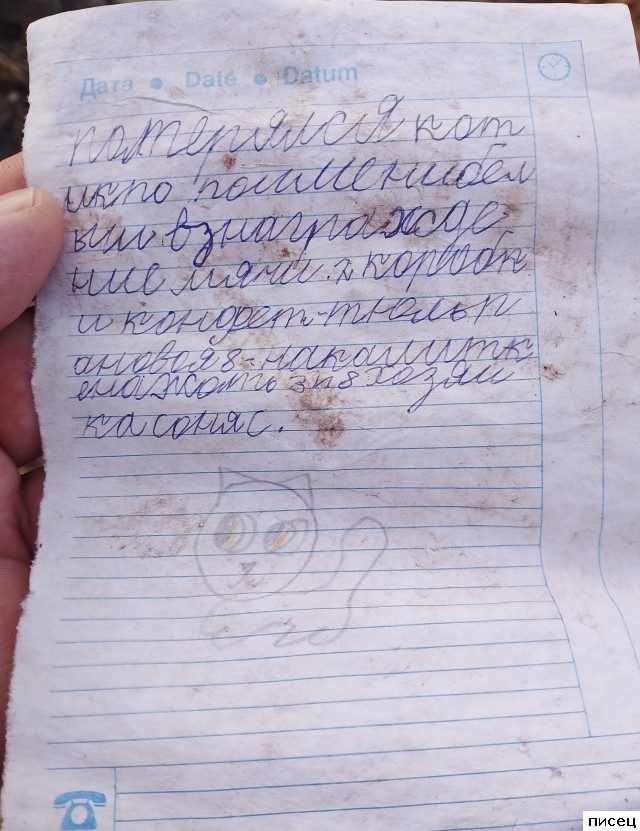 Дата • Date • Datum
потерялся кот
ик по по имени бел
ыи взнагражде
ние мячи 2 коробк
и конфет-тюльп
ановая 8-накалитк
енажать 3 п 8 хозяи
ка соняс.
писец